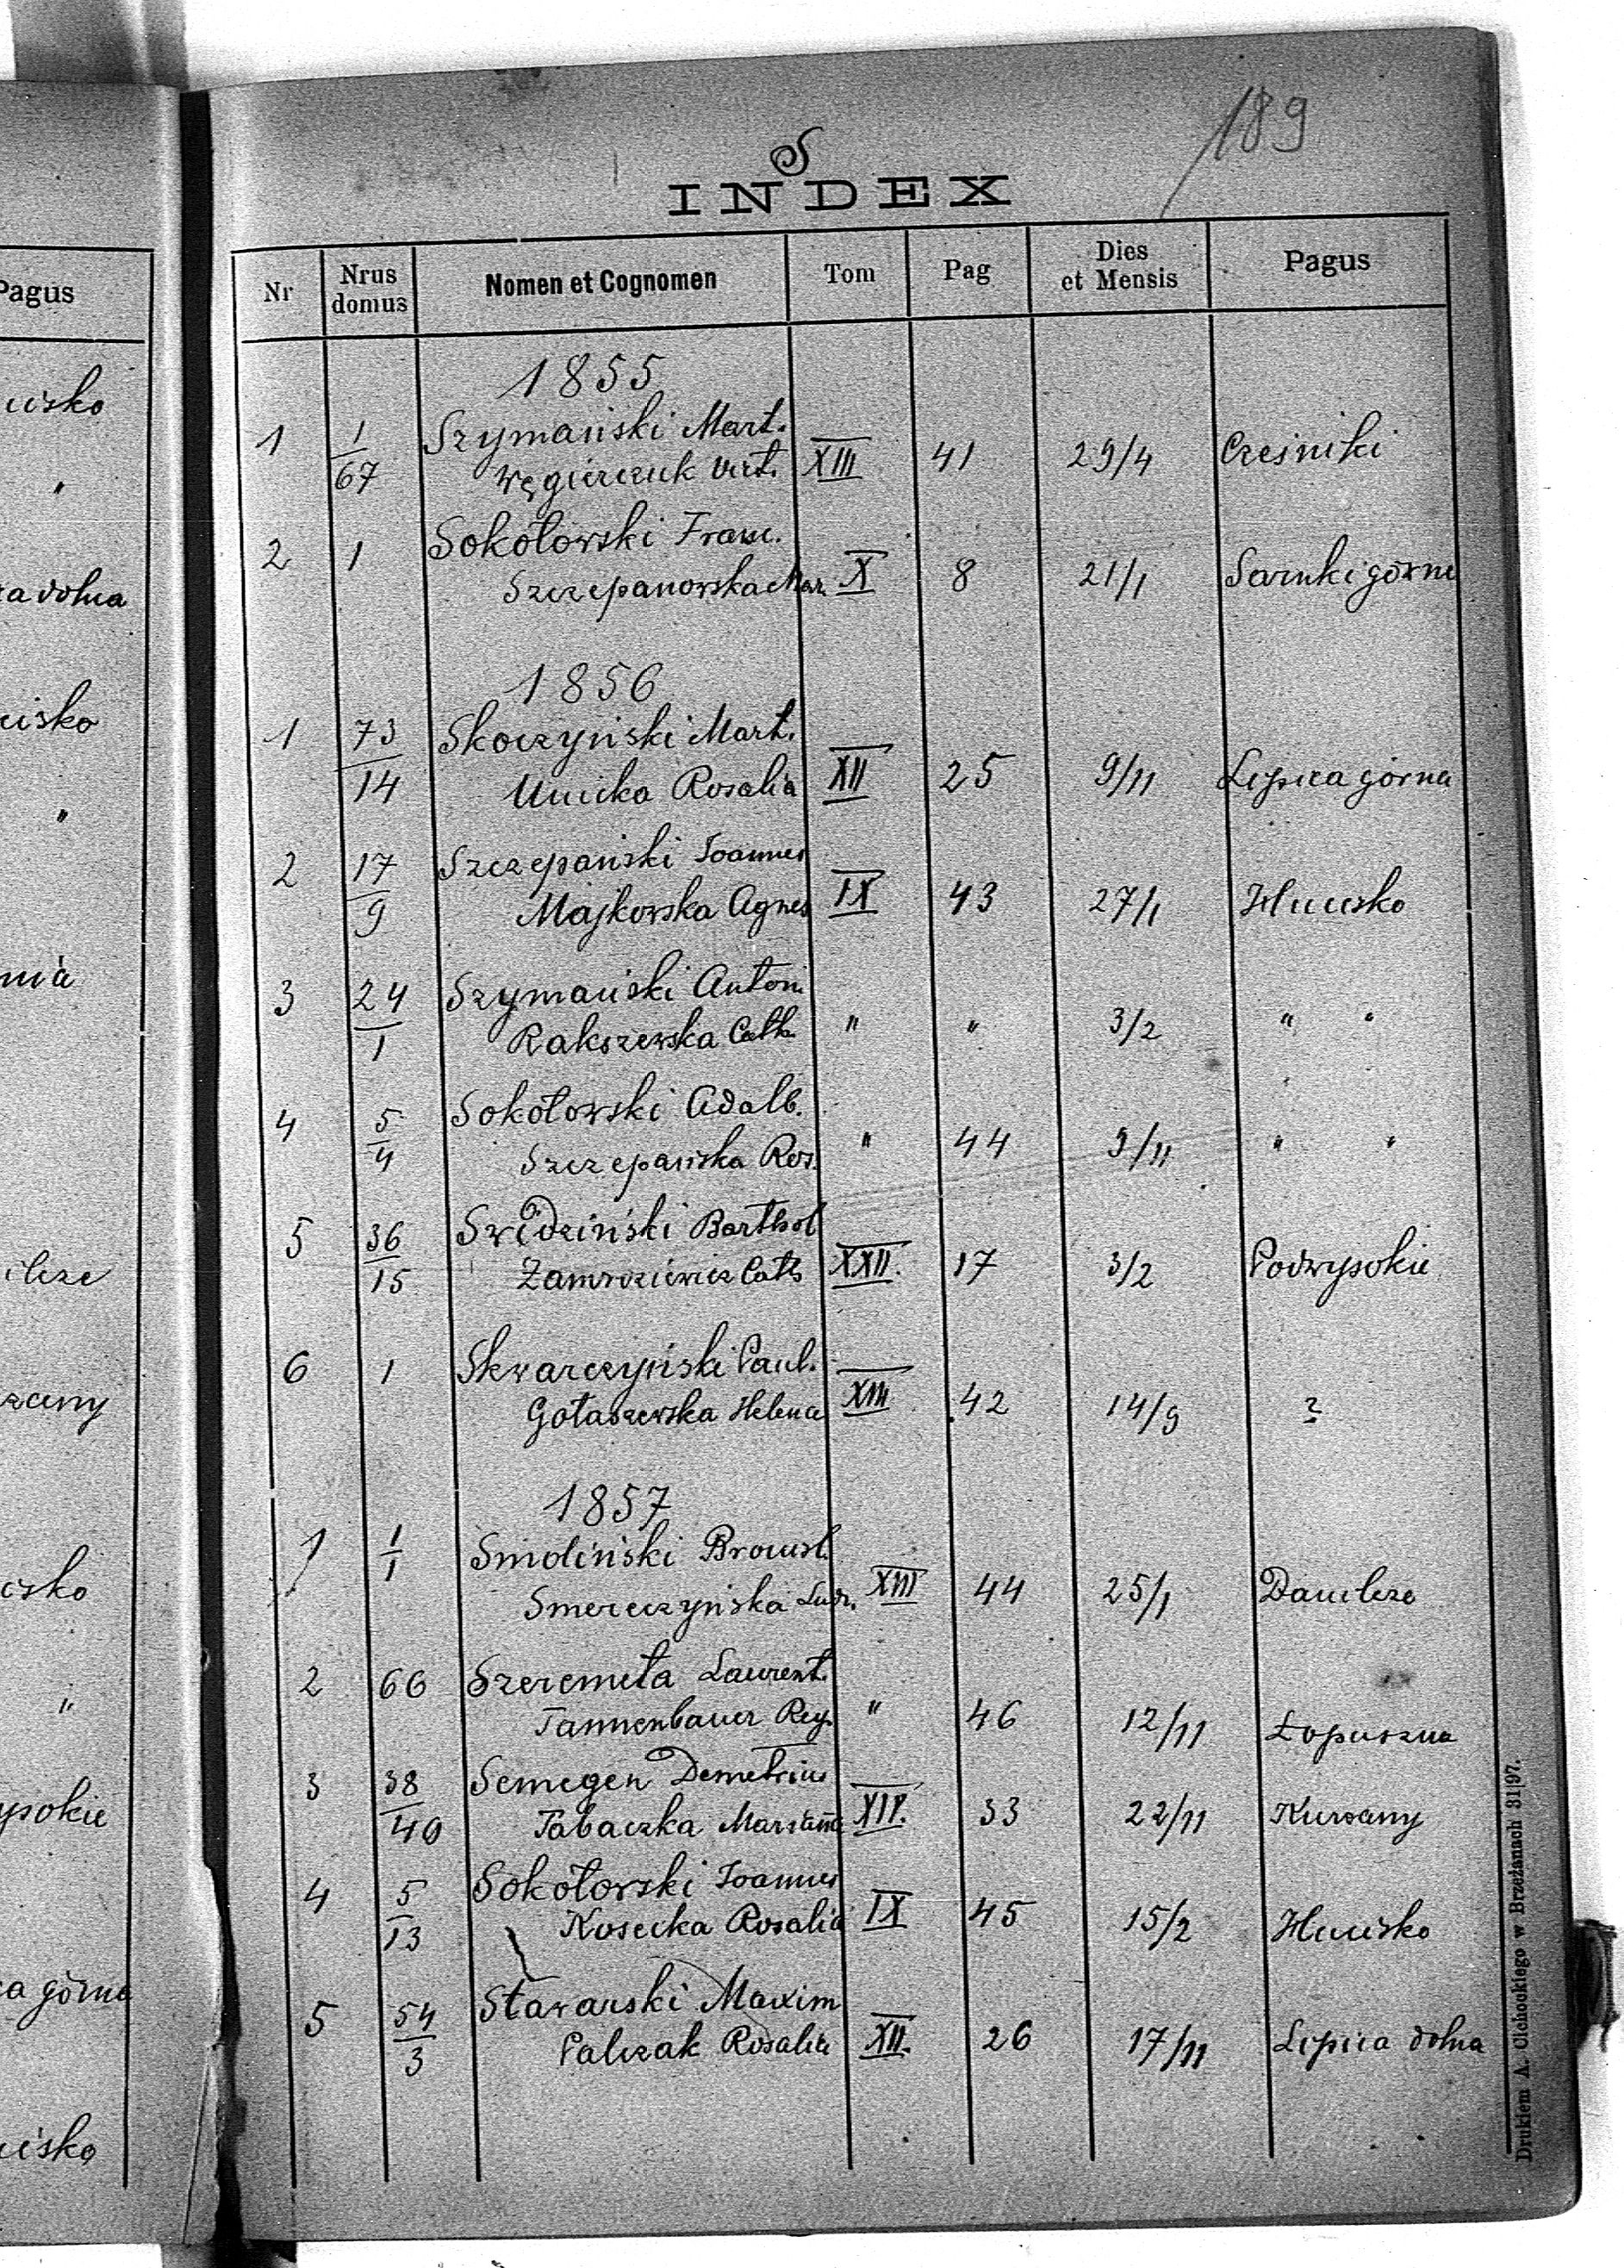 189
S
INDEX
Nr Nrus domus Nomen et Cognomen Tom Pag Dies et Mensis Pagus
1855
1 1/67 Szymański Mart. XIII 41 29/4 Cześniki
Węgierczuk Vict.
2 1 Sokołowski Franc. X 8 21/1 Sarnki górne
Szczepanowska Mar.
1856
1 73/14 Skoczyński Mart. XII 25 9/11 Lipica górna
Unicka Rosalia
2 17/9 Szczepański Joannes IX 43 27/1 Hucisko
Majkowska Agnes
3 24/1 Szymański Antoni " " 3/2 " "
Rakszewska Cath.
4 5/4 Sokołowski Adalb. " 44 9/11 " "
Szczepańska Ros.
5 36/15 Swidziński Barthol XXII. 17 3/2 Podwysokie
Cath
6 1 Skwarczyński Paul. XIII 42 14/9 ?
Gołaszewska Helena
1857
1 1/1 Smoliński Bronisl. XIII 44 25/1 Danilcze
Smereczyńska Ludw.
2 66 Szeremeta Laurent. " 46 12/11 Łopuszna
Tannenbauer Reg.
3 38/40 Semegen Demetrius XIV. 33 22/11 Kurzany
Tabaczka Marianna
4 5/13 Sokołowski Joannes IX 45 15/2 Hucisko
Kosecka Rosalia
5 54/3 Stawarski Maxim XII. 26 17/11 Lipica dolna
Palczak Rosalia
Drukiem A. Cichockiego w Brzeżanach 31|97.
Pagus
ucisko
"
ca dolna
ucisko
"
nia
ilcze
rzany
cisko
"
ysokie
ca górna
ucisko